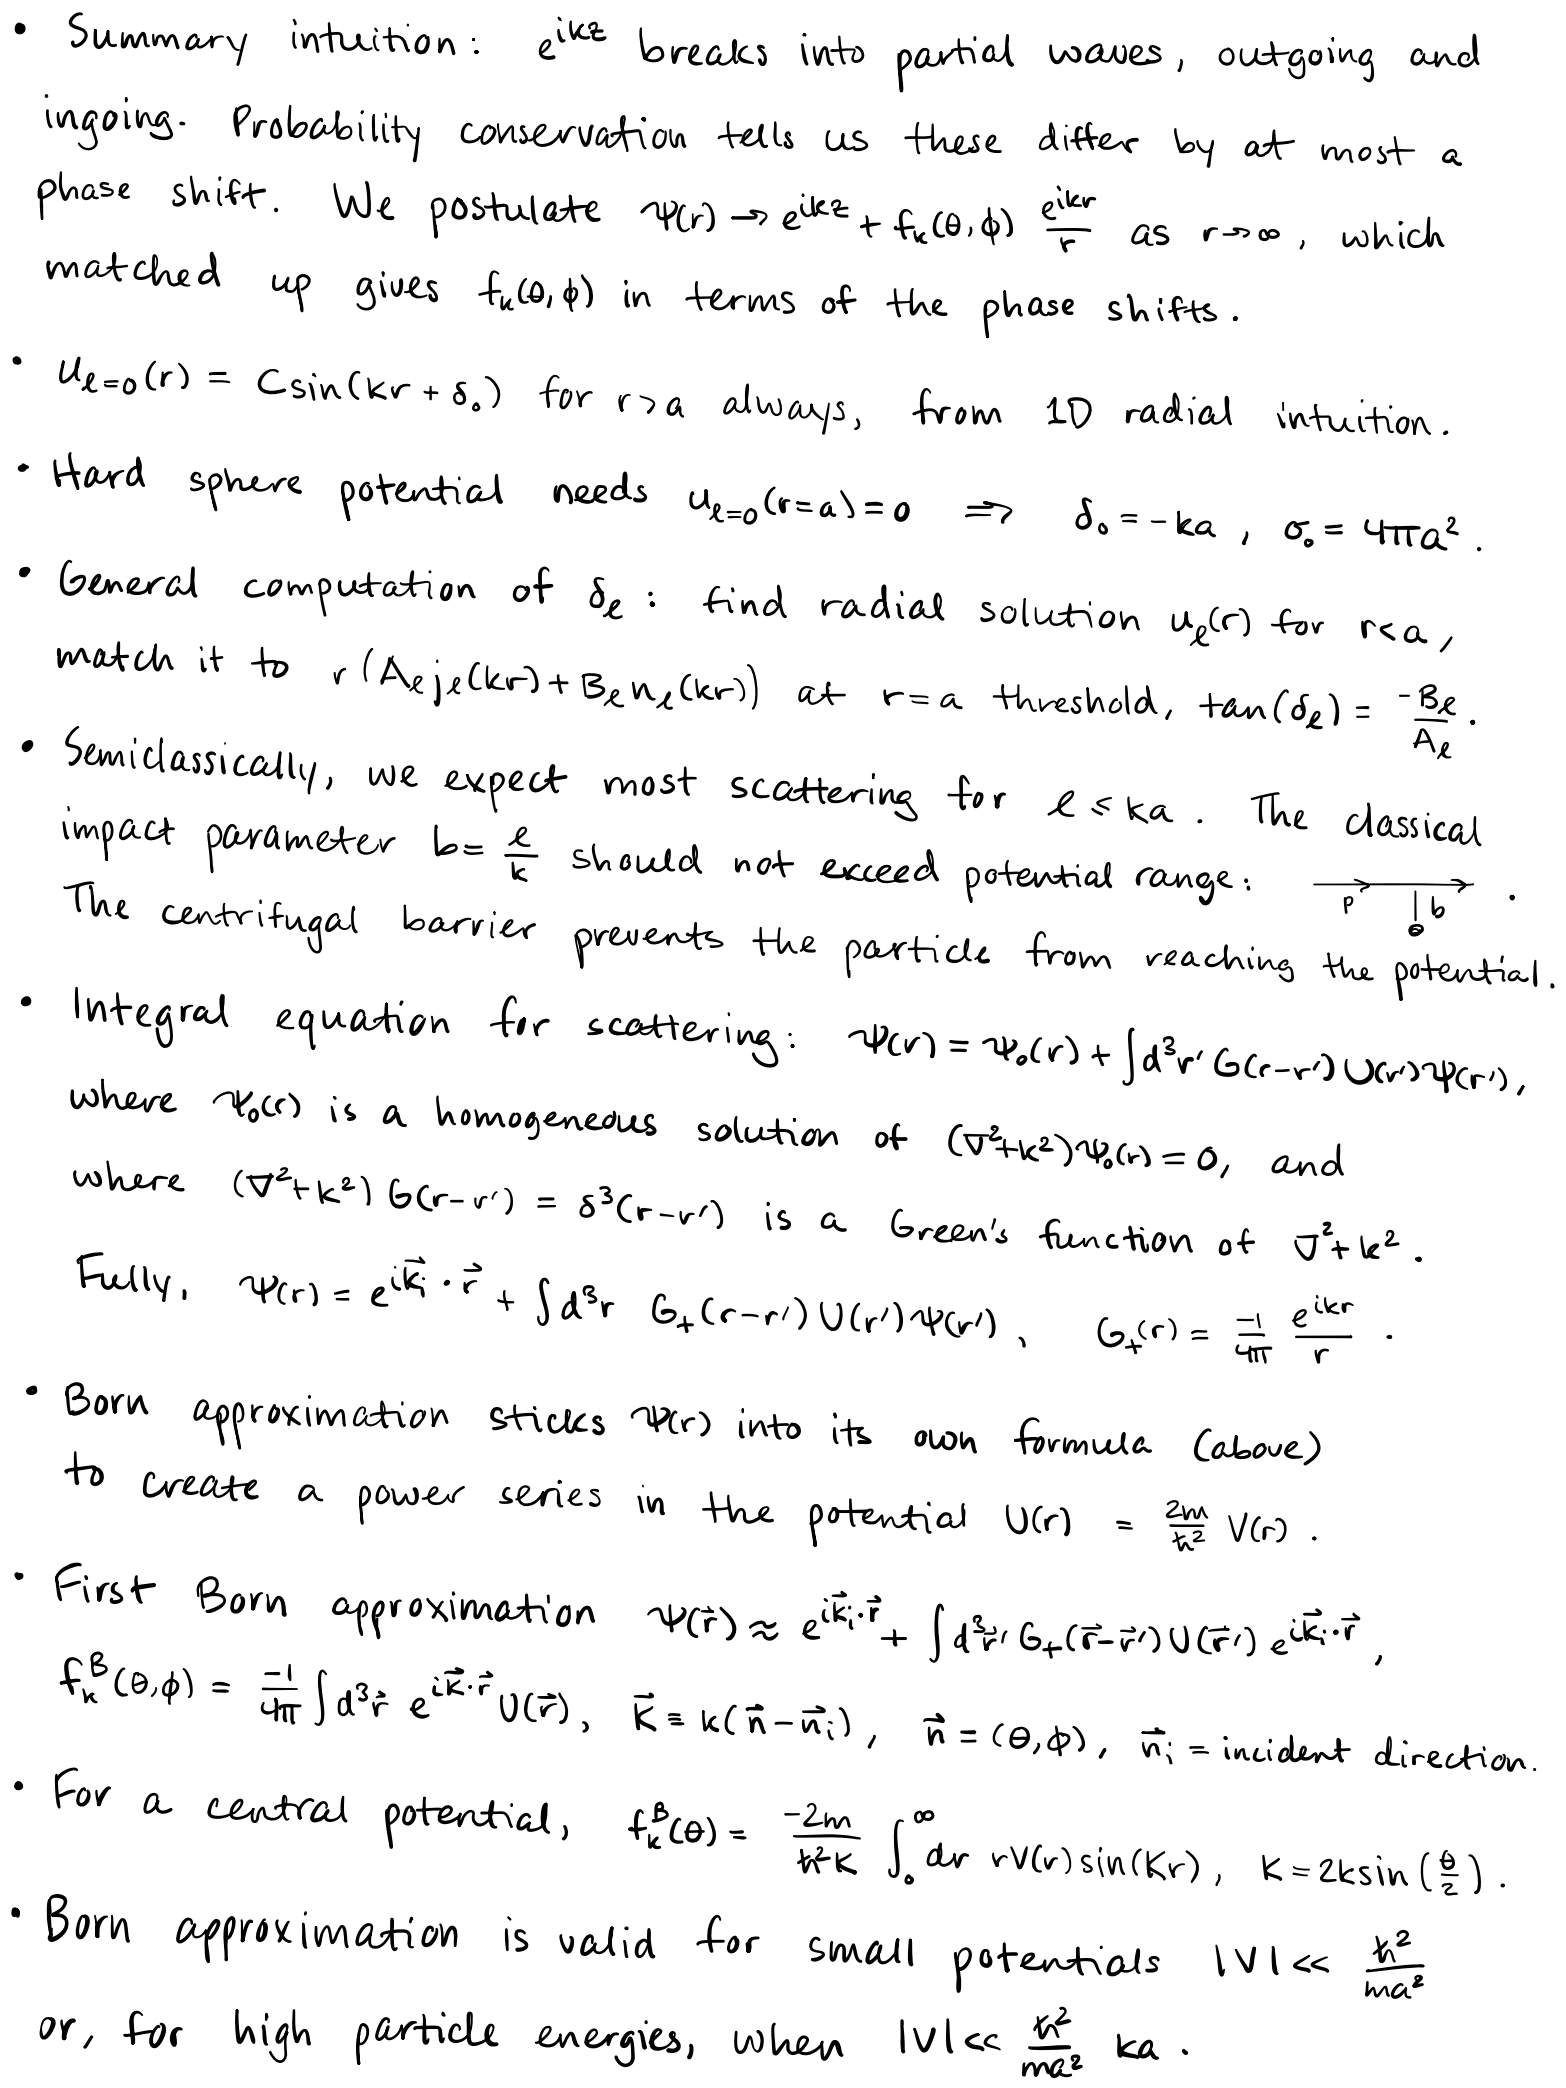 • Summary intuition: e^{ikz} breaks into partial waves, outgoing and
ingoing. Probability conservation tells us these differ by at most a
phase shift. We postulate ψ(r) → e^{ikz} + f_k(θ,ϕ) \frac{e^{ikr}}{r} as r→∞, which
matched up gives f_k(θ,ϕ) in terms of the phase shifts.
• u_{ℓ=0}(r) = C sin(kr + δ_0) for r>a always, from 1D radial intuition.
• Hard sphere potential needs u_{ℓ=0}(r=a)=0 ⇒ δ_0 = -ka, σ_0 = 4πa².
• General computation of δ_ℓ: find radial solution u_ℓ(r) for r<a,
match it to r(A_ℓ j_ℓ(kr) + B_ℓ n_ℓ(kr)) at r=a threshold, tan(δ_ℓ) = \frac{-B_ℓ}{A_ℓ}.
• Semiclassically, we expect most scattering for ℓ ≤ ka. The classical
impact parameter b = \frac{ℓ}{k} should not exceed potential range: p b .
The centrifugal barrier prevents the particle from reaching the potential.
• Integral equation for scattering: ψ(r) = ψ_0(r) + ∫d³r' G(r-r')U(r')ψ(r'),
where ψ_0(r) is a homogeneous solution of (∇²+k²)ψ_0(r) = 0, and
where (∇²+k²) G(r-r') = δ³(r-r') is a Green's function of ∇²+k².
Fully, ψ(r) = e^{i\vec{k}_i·\vec{r}} + ∫d³r G_+(r-r')U(r')ψ(r'), G_+(r) = \frac{-1}{4π} \frac{e^{ikr}}{r}.
• Born approximation sticks ψ(r) into its own formula (above)
to create a power series in the potential U(r) = \frac{2m}{ħ²} V(r).
• First Born approximation ψ(\vec{r}) ≈ e^{i\vec{k}_i·\vec{r}} + ∫d³\vec{r}' G_+(\vec{r}-\vec{r}')U(\vec{r}') e^{i\vec{k}_i·\vec{r}},
f_k^B(θ,ϕ) = \frac{-1}{4π} ∫d³\vec{r} e^{i\vec{K}·\vec{r}} U(\vec{r}), \vec{K} ≡ k(\vec{n}-\vec{n}_i), \vec{n} = (θ,ϕ), \vec{n}_i = incident direction.
• For a central potential, f_k^B(θ) = \frac{-2m}{ħ²K} ∫_0^∞ dr rV(r)sin(Kr), K = 2k sin(\frac{θ}{2}).
• Born approximation is valid for small potentials |V| << \frac{ħ²}{ma²}
or, for high particle energies, when |V| << \frac{ħ²}{ma²} ka.